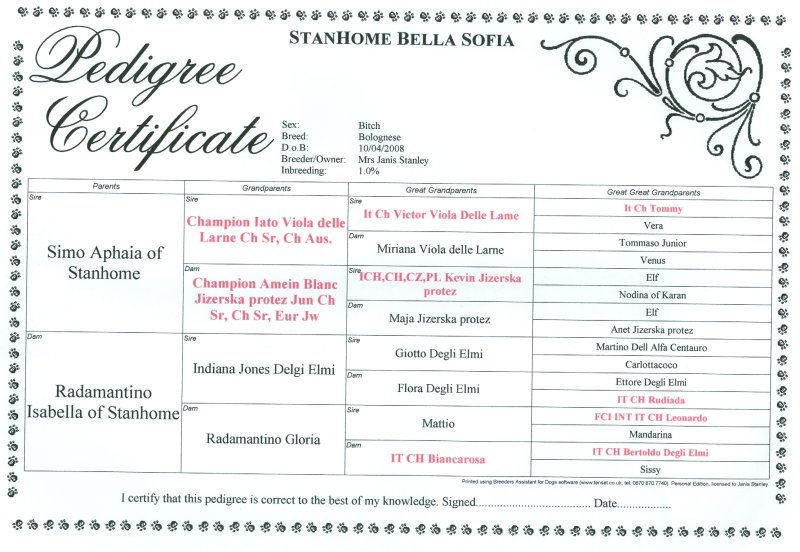 STANHOME BELLA SOFIA
Pedigree
Certificate
Sex: Bitch
Breed: Bolognese
D.o.B: 10/04/2008
Breeder/Owner: Mrs Janis Stanley
Inbreeding: 1.0%
Parents
Grandparents
Great Grandparents
Great Great Grandparents
Sire
Simo Aphaia of
Stanhome
Sire
Champion Iato Viola delle
Larne Ch Sr, Ch Aus.
Sire
It Ch Victor Viola Delle Lame
It Ch Tommy
Vera
Dam
Miriana Viola delle Larne
Tommaso Junior
Venus
Dam
Champion Amein Blanc
Jizerska protez Jun Ch
Sr, Ch Sr, Eur Jw
Sire
ICH,CH,CZ,PL Kevin Jizerska
protez
Elf
Nodina of Karan
Dam
Maja Jizerska protez
Elf
Anet Jizerska protez
Dam
Radamantino
Isabella of Stanhome
Sire
Indiana Jones Delgi Elmi
Sire
Giotto Degli Elmi
Martino Dell Alfa Centauro
Carlottacoco
Dam
Flora Degli Elmi
Ettore Degli Elmi
IT CH Rudiada
Dam
Radamantino Gloria
Sire
Mattio
FCI INT IT CH Leonardo
Mandarina
Dam
IT CH Biancarosa
IT CH Bertoldo Degli Elmi
Sissy
Printed using Breeders Assistant for Dogs software (www.tenset.co.uk, tel: 0870 870 7740). Personal Edition, licensed to Janis Stanley.
I certify that this pedigree is correct to the best of my knowledge. Signed............................ Date................